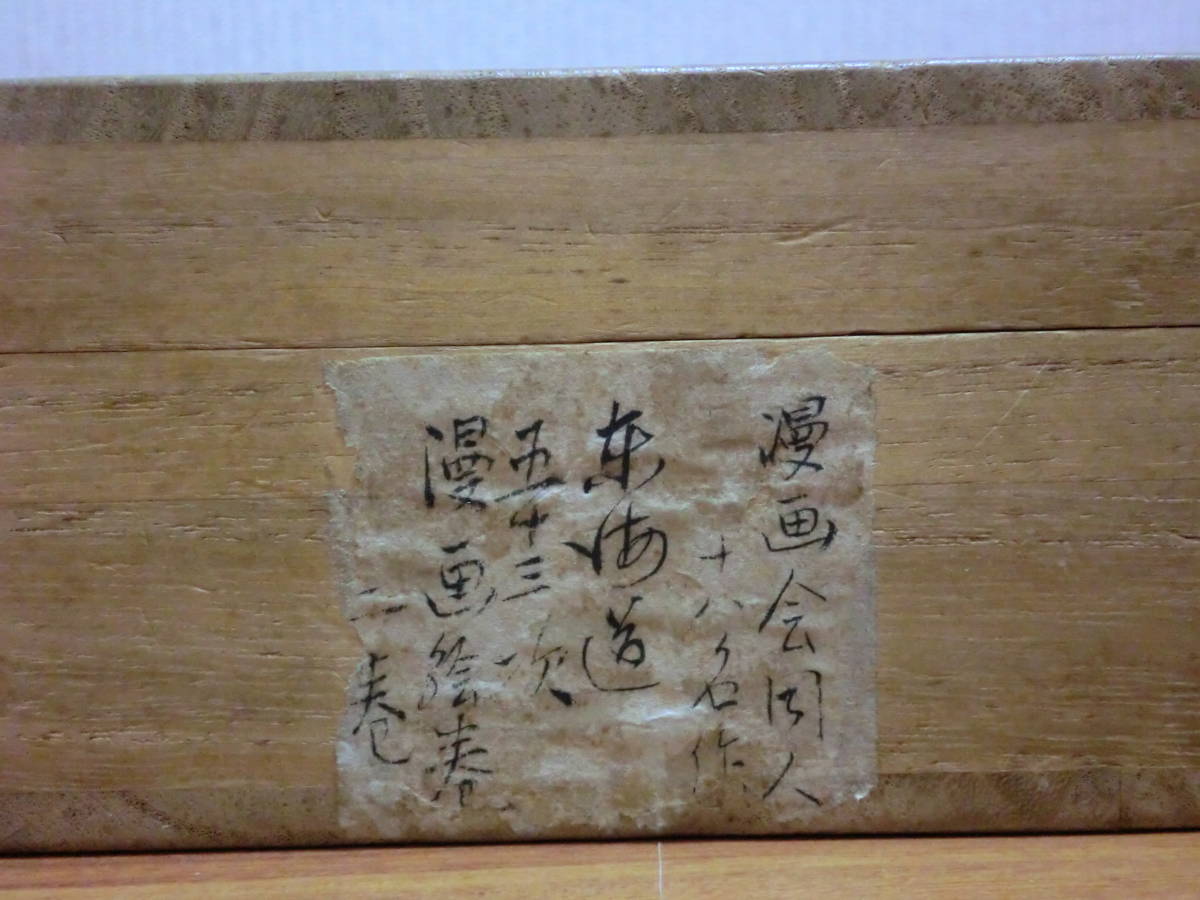 漫画会同人
十八名作
东海道
五十三次
漫画絵巻
二巻